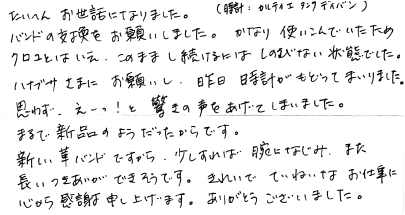 たいへん お世話になりました。 (時計：カルティエ タンク ディバン)
バンドの交換を お願いしました。 かなり 使いこんでいたため
クロコとはいえ、このまま し続けるには しのびない 状態でした。
ハナブサ さまに お願いし、昨日 時計が もどって まいりました。
思わず、えーっ！と 驚きの声をあげて しまいました。
まるで 新品の ようだったからです。
新しい 革バンド ですから、少しすれば 腕になじみ、また
長い つきあいが できそうです。 きれいで ていねいな お仕事に
心から 感謝 申し上げます。 ありがとう ございました。